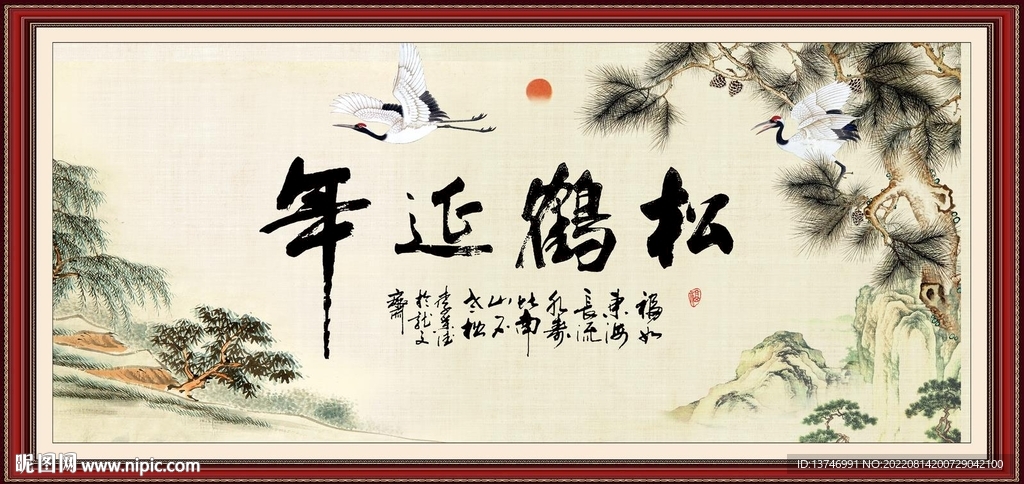 松鶴延年
福如
東海
長流
水壽
比南
山不
老松
於龍文
齋
昵图网 www.nipic.com
ID:13746991 NO:20220814200729042100